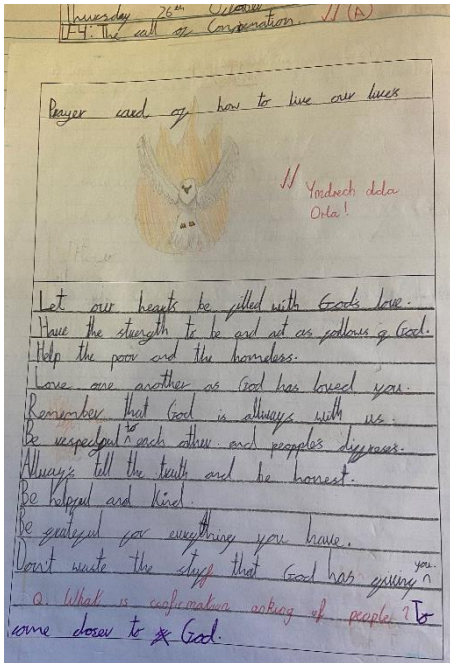 Thursday 26th October
L4: The call of Confirmation. // (A)
Prayer card of how to live our lives
// Ymdrech dda
Orla!
Let our hearts be filled with Gods love.
Have the strength to be and act as follows of God.
Help the poor and the homeless.
Love one another as God has loved you.
Remember that God is allways with us.
Be respecful to each other and peoples diffreses.
Allways tell the truth and be honest.
Be helpful and kind.
Be grateful for everything you have.
Don't waste the stuff that God has giving you.
Q. What is confirmation asking of people? To
come closer to God.